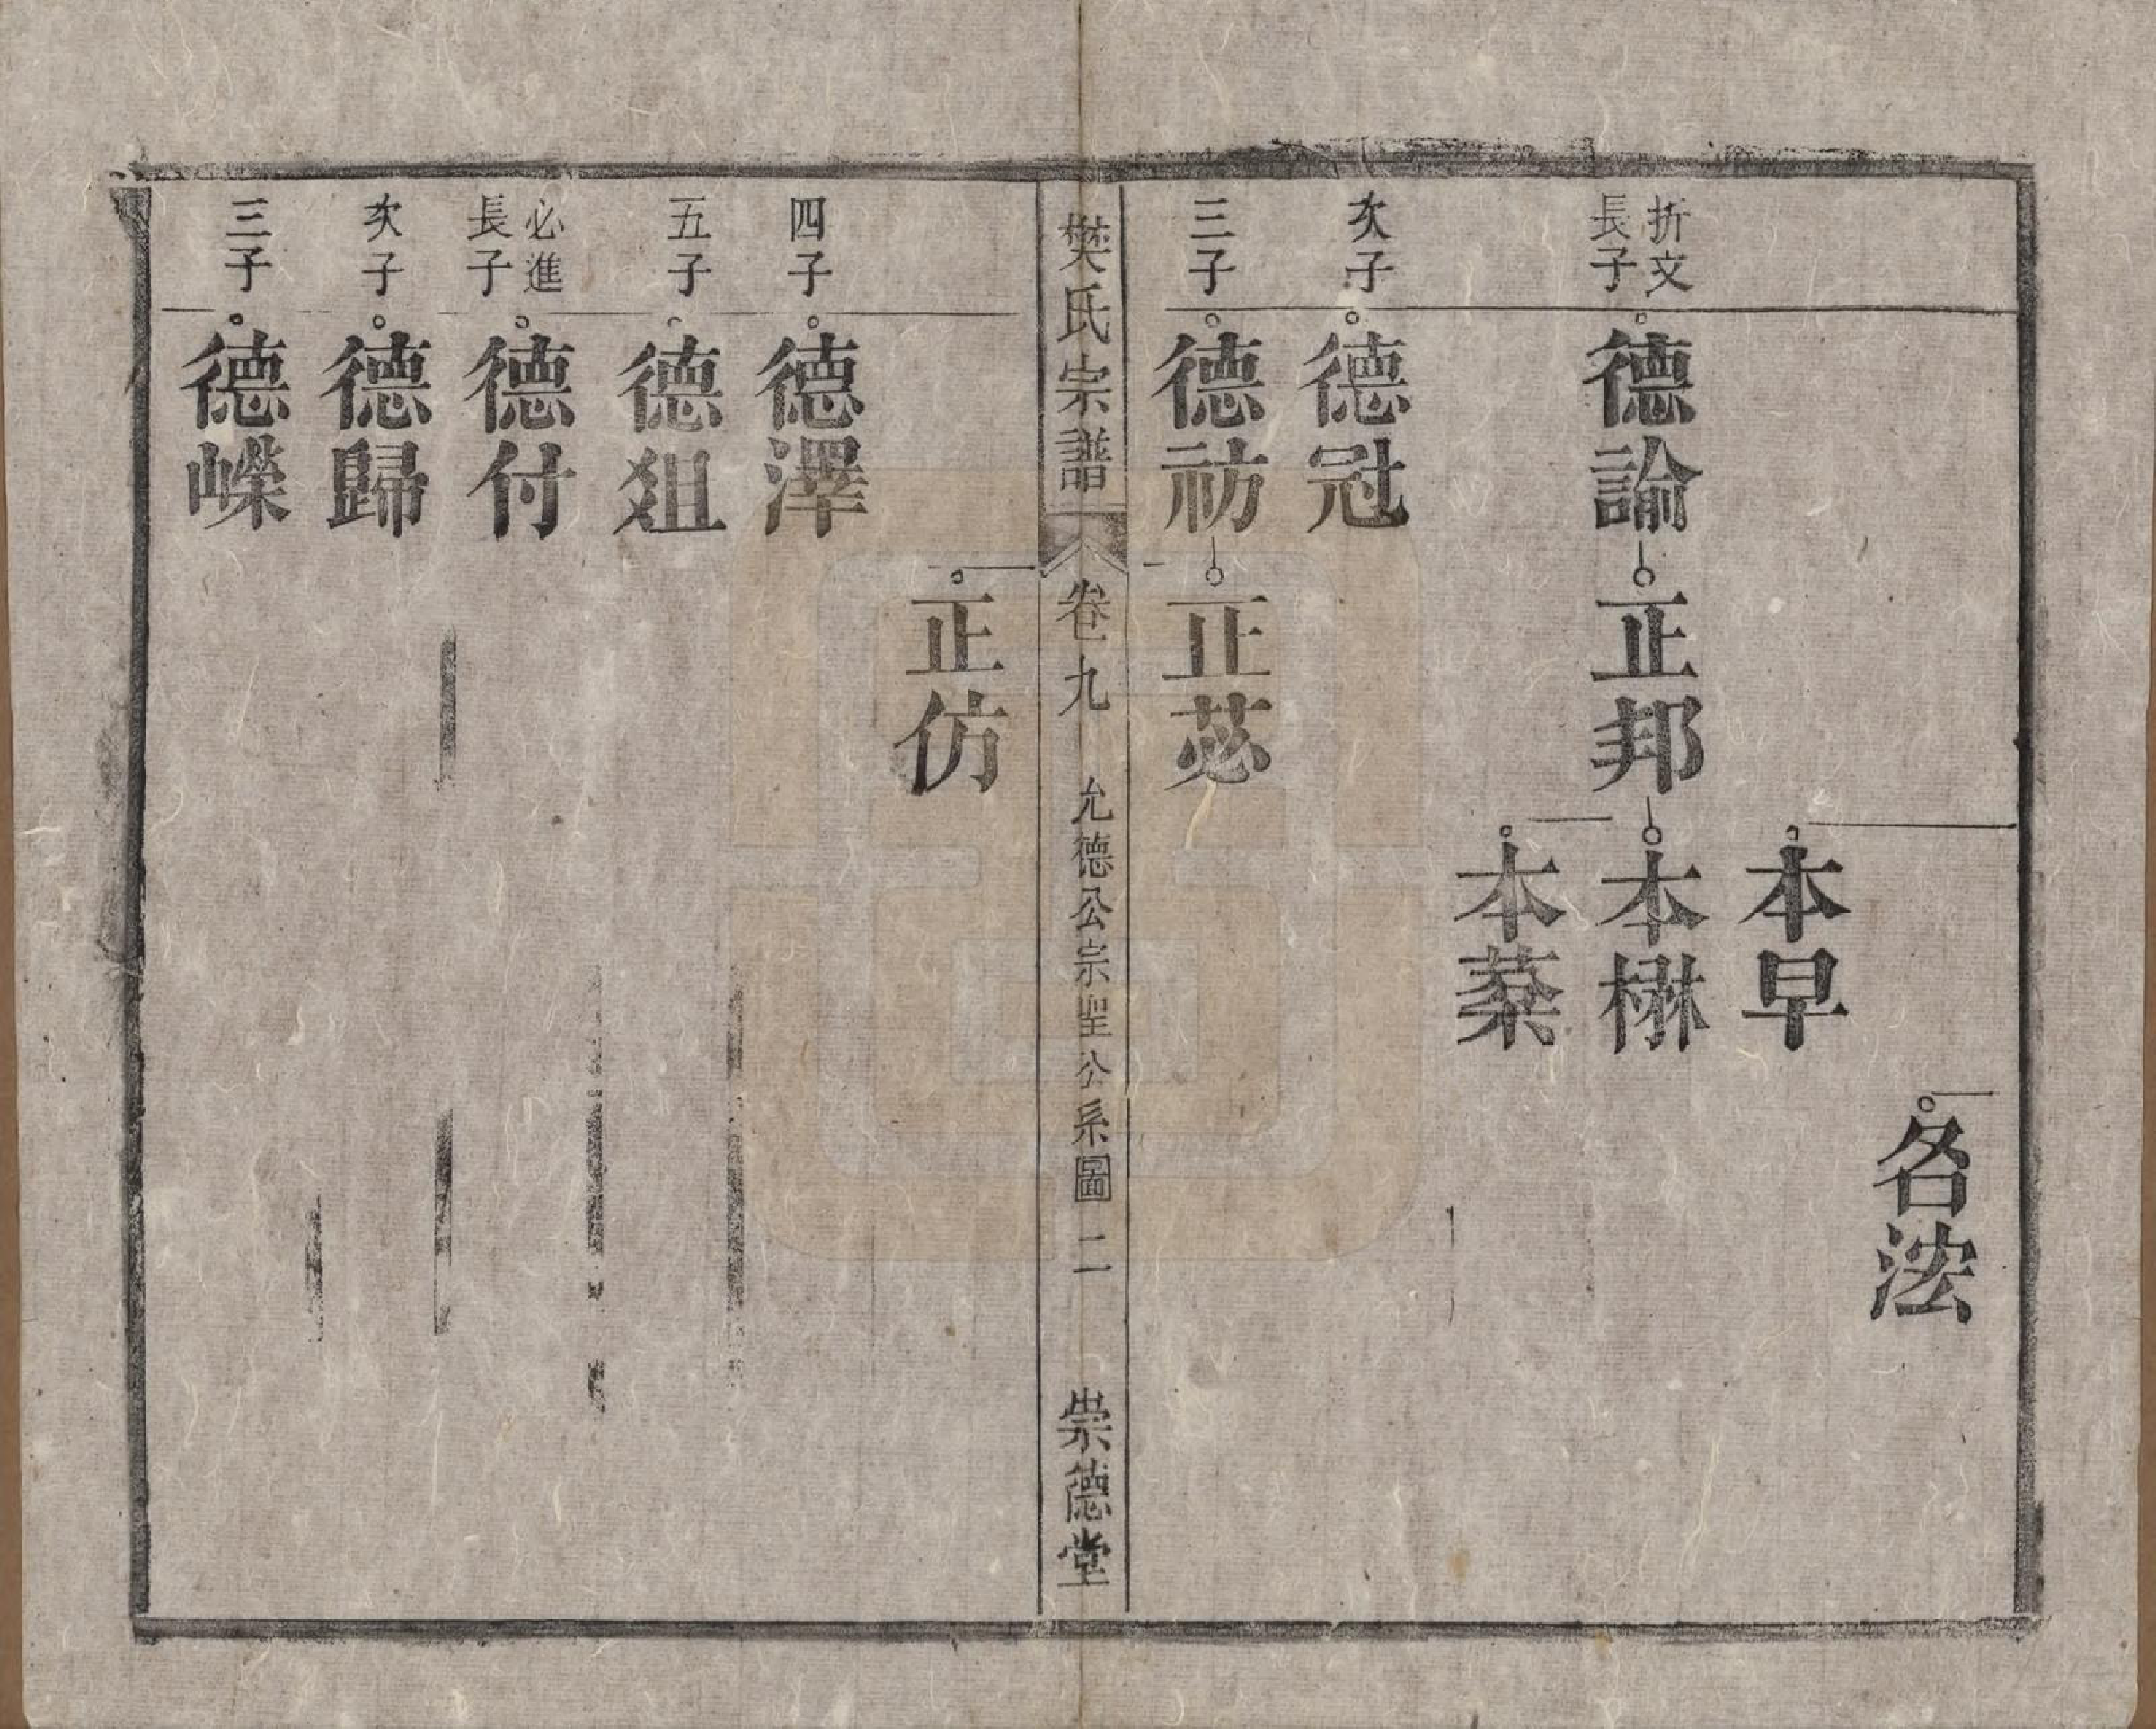 名浤
本早
折文
長子
德諭
正邦
本楙
本蘃
次子
德冠
三子
德祊
正苾
樊氏宗譜
卷九
允德公宗聖公系圖
二
崇德堂
正仿
四子
德澤
五子
德爼
必進
長子
德付
次子
德歸
三子
德嶸